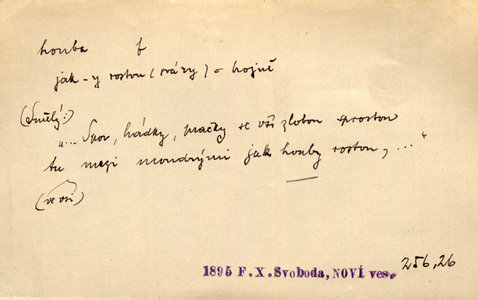 houba f
jak -y rostou (svázy) = hojně
(Smělý:)
"... Svor, hádky, pračky se vší zlobou sprostou
tu mezi moudrými jak houby rostou, ..."
(ve vsi)
1895 F. X. Svoboda, NOVÍ ves. 256,26